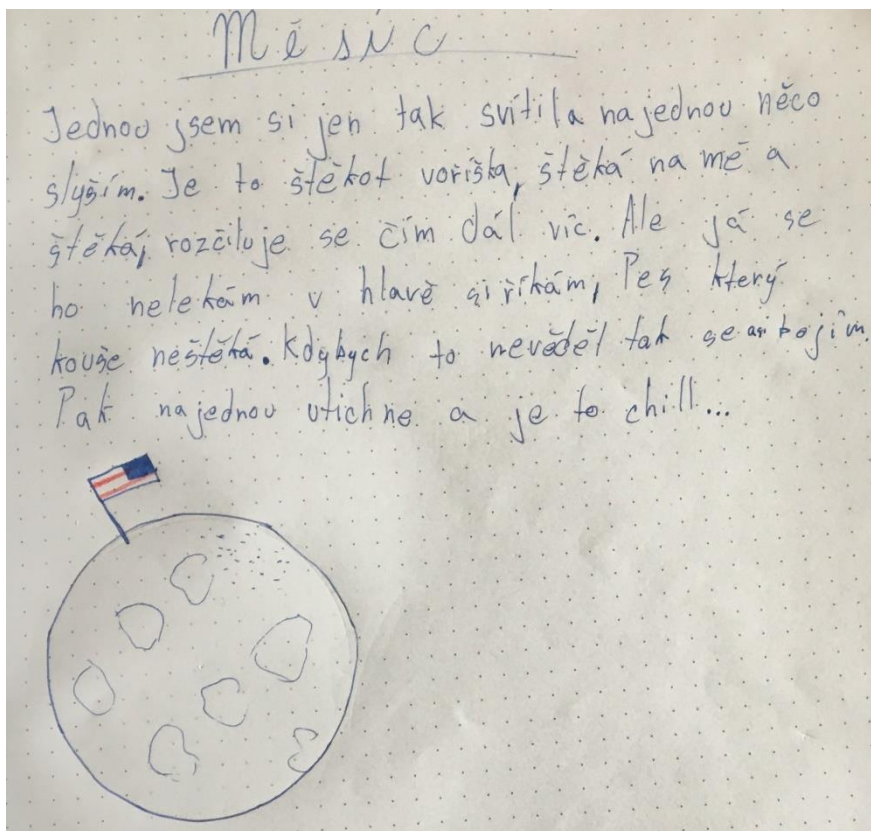 Měsíc
Jednou jsem si jen tak svítila najednou něco
slyším. Je to štěkot voříška, štěká na mě a
štěká, rozčiluje se čím dál víc. Ale já se
ho nelekám v hlavě si říkám, Pes který
kouše neštěká. Kdybych to nevěděl tak se asi bojím.
Pak najednou utichne a je to chill...